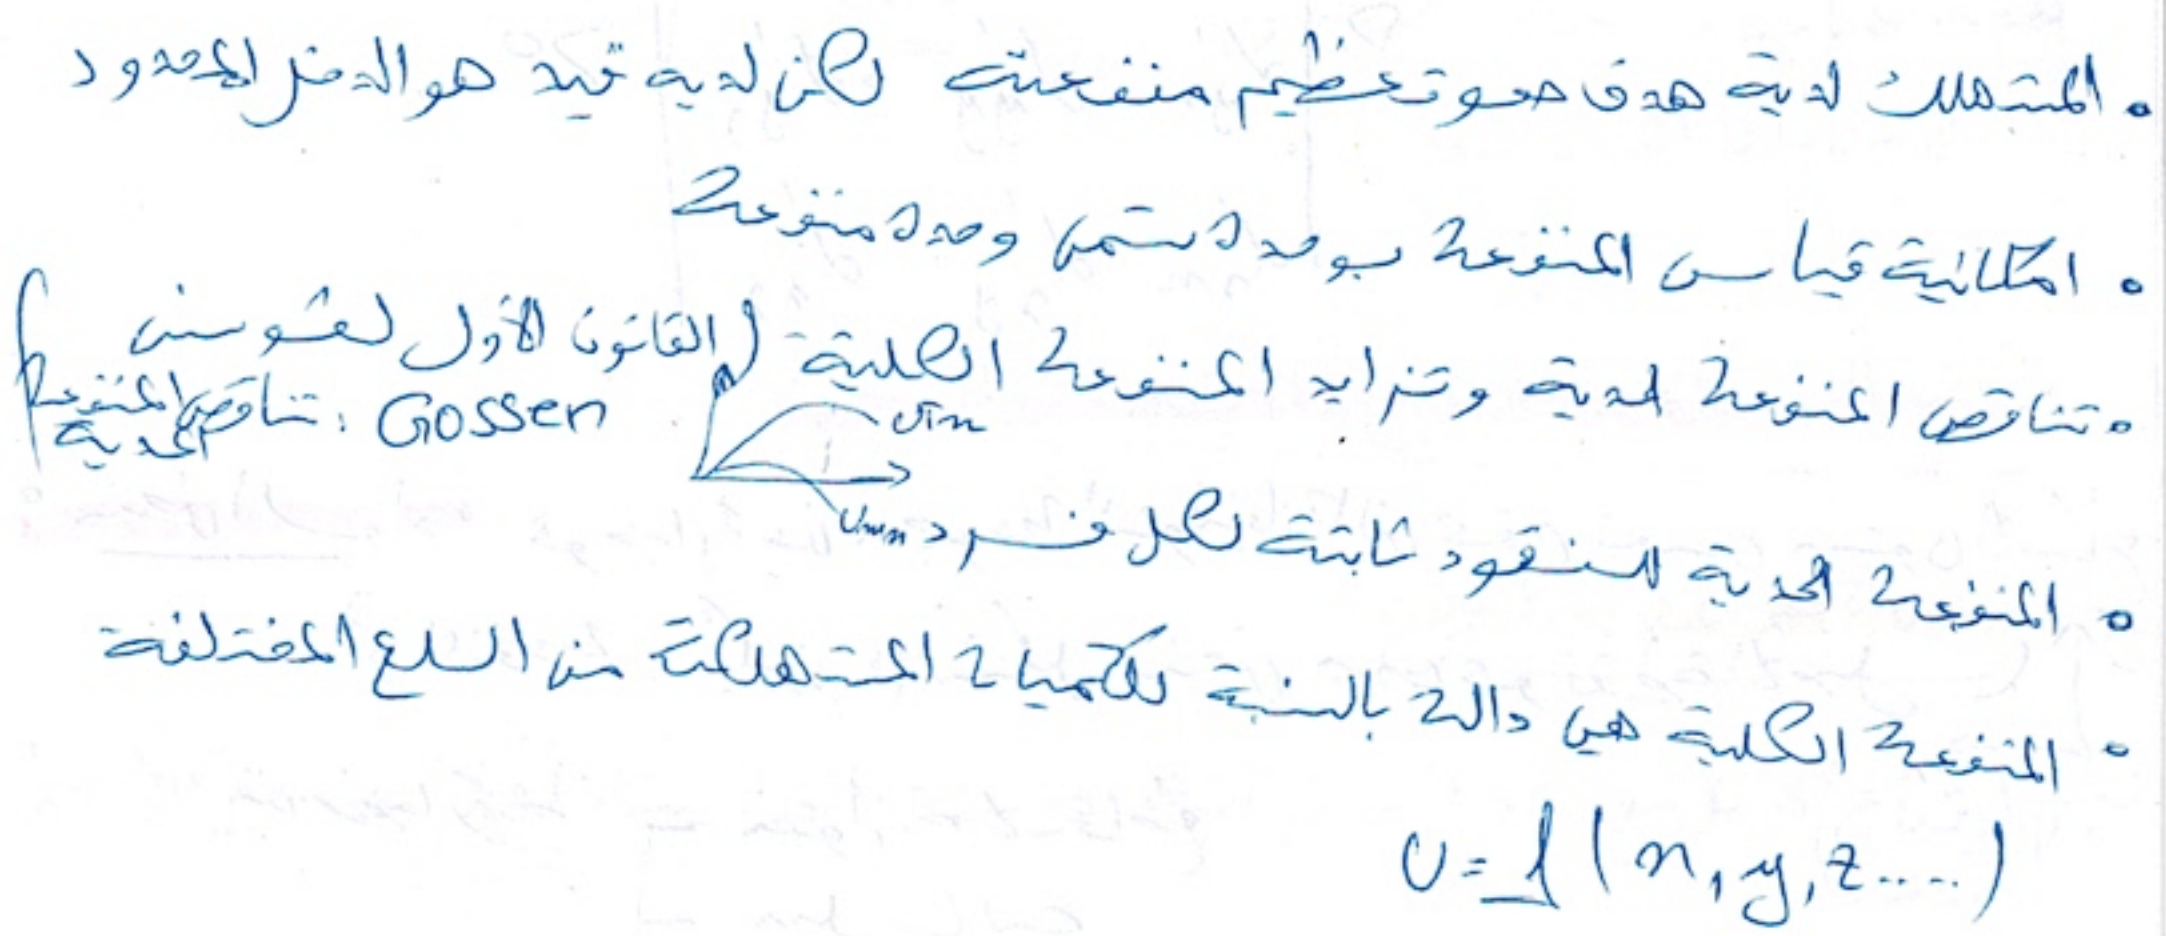 • المستهلك لدية هدف وهو تعظيم منفعته لكن لديه قيد هو الدخل المحدود
• امكانية قياس المنفعة بوحدة تسمى وحدة منفعة
• تناقص المنفعة الحدية وتزايد المنفعة الكلية (القانون الأول لغوسن
Gossen : تناقص المنفعة الحدية)
UTx
Umx
• المنفعة الحدية للنقود ثابتة لكل فرد
• المنفعة الكلية هي دالة بالنسبة للكميات المستهلكة من السلع المختلفة
U = f (x, y, z.....)